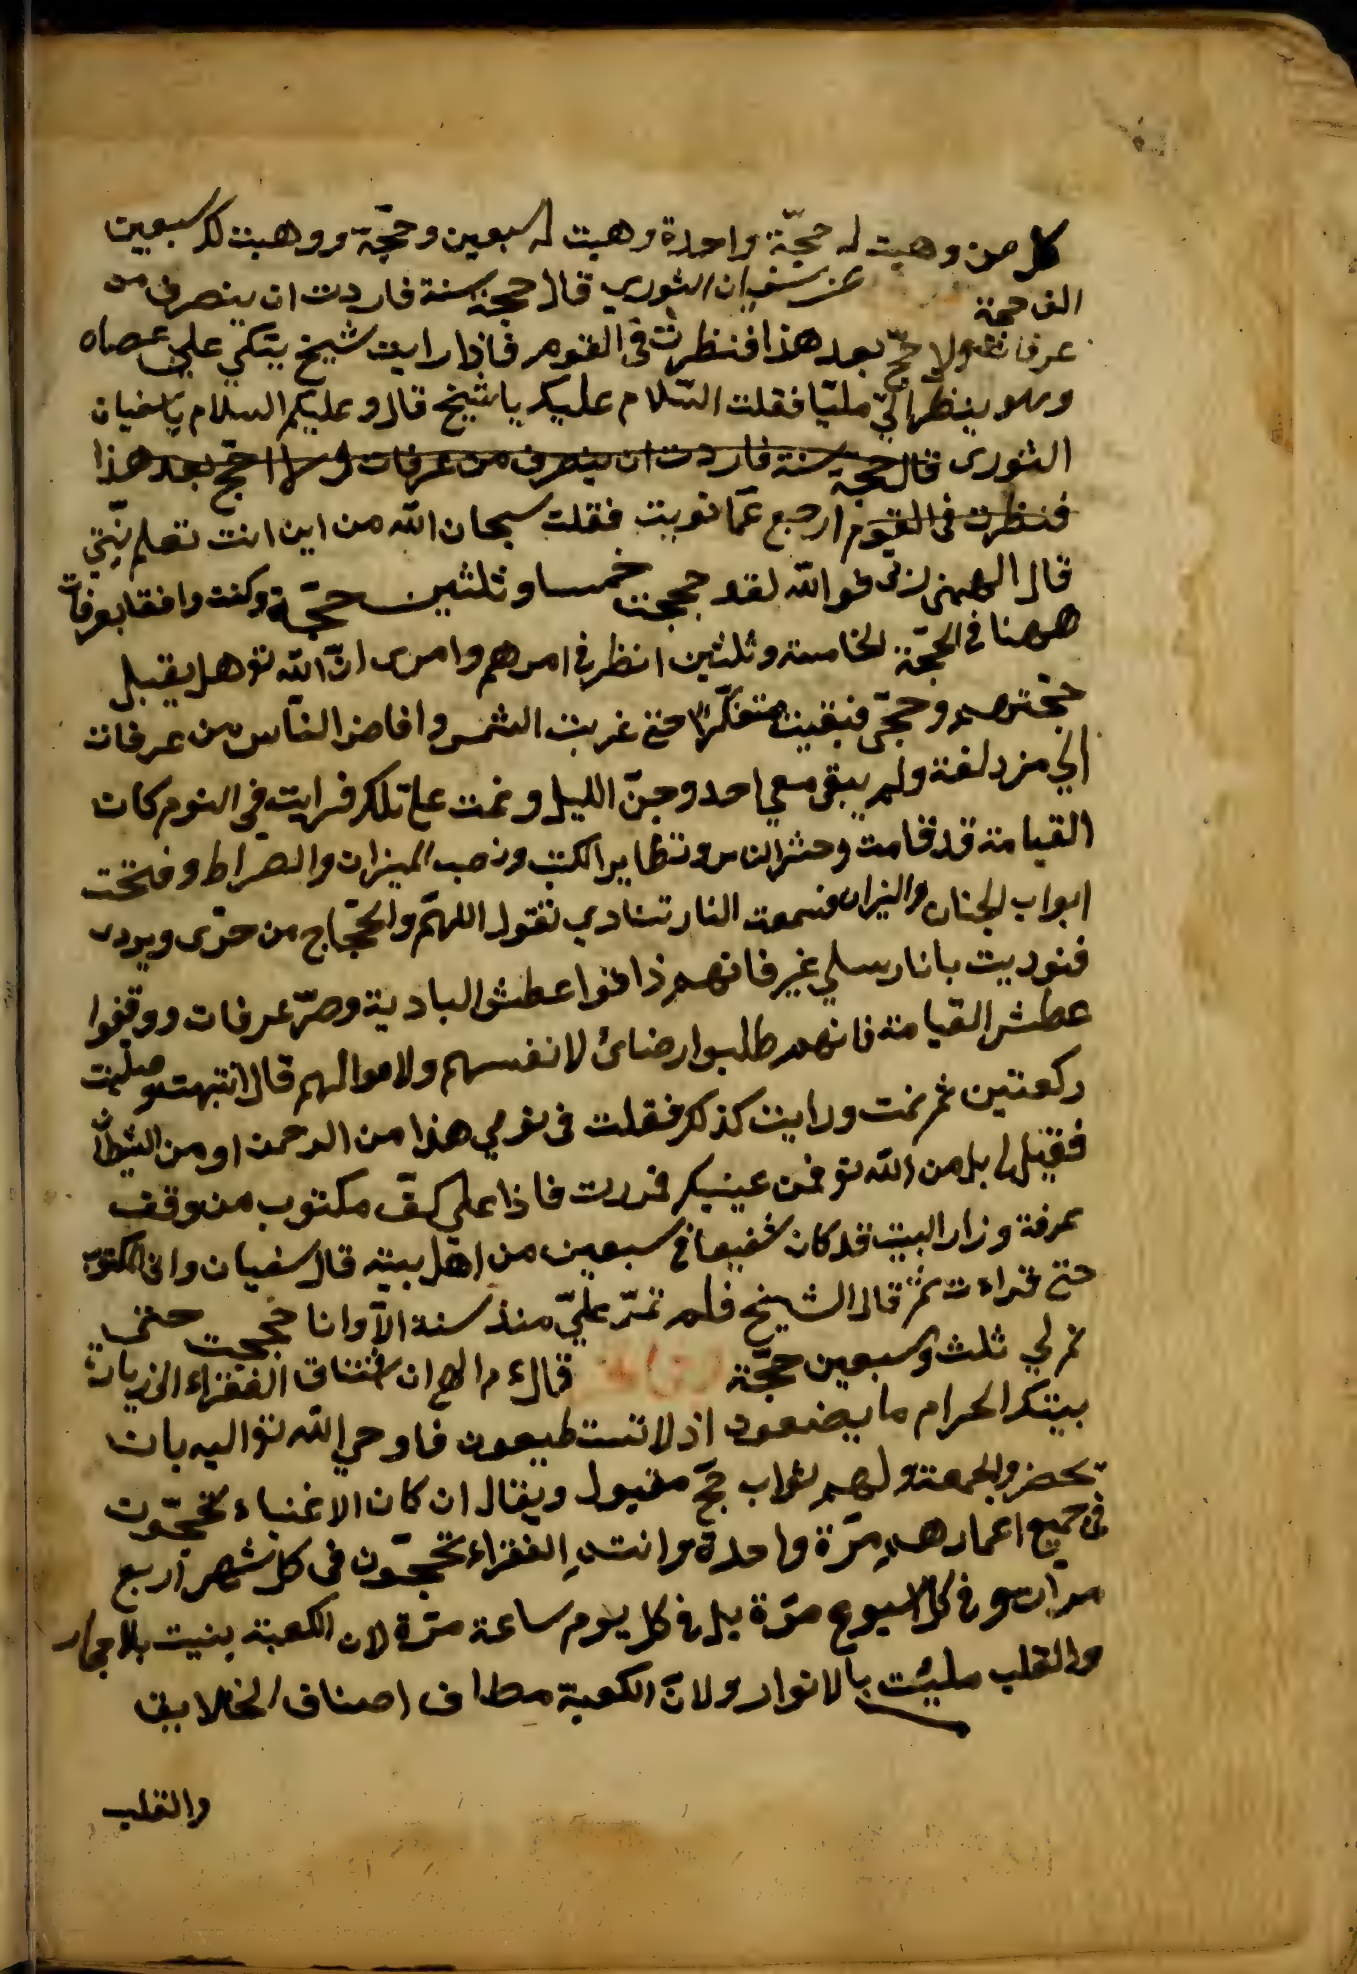 كل من وهبت له حجّة واحدة وهبت له سبعين وحجّة ووهبت لك سبعين
الف حجة عن سفيان الثوري قال حججت سنة فاردت ان ينصرف من
عرفات ولا حجّ بعد هذا فنظرت في القوم فاذا رايت شيخ يتكي علي عصاه
وهو ينظر اليّ مليّا فقلت السّلام عليك يا شيخ قال وعليكم السلام يا سفيان
الثوري قال حججت سنة فاردت ان ينصرف من عرفات ولا احجّ بعد هذا
فنظرت في القوم ارجع عمّا نويت فقلت سبحان الله من اين انت تعلم نيّتي
قال الهمني ربي فو الله لقد حججت خمسا وثلثين حجّة وكنت واقفا بعرفات
ههنا في الحجّة الخامسة وثلثين انظر في امرهم وامري انّ الله تع هل يقبل
حجّتهم وحجّي فبقيت متفكّرا حتي غربت الشمس وافاض النّاس من عرفات
الي مزدلفة ولم يبقى معي احد وجنّ الليل ونمت علي تلك فرايت في النوم كان
القيامة قد قامت وحشر الناس وتطاير الكتب ونصب الميزان والصراط وفتحت
ابواب الجنان والنيران فسمعت النار تنادي تقول اللهمّ والحجّاج من حرّى وبردى
فنوديت يا نار سلي غير فانهم ذاقوا عطش البادية وحرّ عرفات ووقفوا
عطش القيامة فانهم طلبوا رضائ لا نفسهم ولا موالهم قال انتبهت وصليت
ركعتين ثم نمت ورايت كذلك فقلت في نومي هذا من الرحمن او من الشيطان
فقيل لي بل من الله تع فمن عينيك فمررت فاذا علي كفّ مكتوب من وقف
عرفة وزار البيت قد كان شفيعا في سبعين من اهل بيته قال سفيان واني المكتوب
حتي قراءت ثمّ قال الشيخ فلم تمرّ عليّ منذ سنة الآ وانا حججت حتي
تم لي ثلث وسبعين حجّة قال ان تشتاق الفقراء الي زيارة
بيتك الحرام ما يصنعون اذ لا تستطيعون فاوحي الله تع اليه بان
تحضر والجمعة ولهم ثواب حجّ مقبول ويقال ان كان الاغنياء تحجّون
في جميع اعمارهم مرّة واحدة وانتم الفقراء تحجّون في كل شهر اربع
مرّات وفي كل اسبوع مرّة بل في كل يوم ساعة مرّة لان الكعبة بنيت بالاحجار
والقلب مليئت بالانوار ولانّ الكعبة مطاف اصناف الخلايق
والقلب